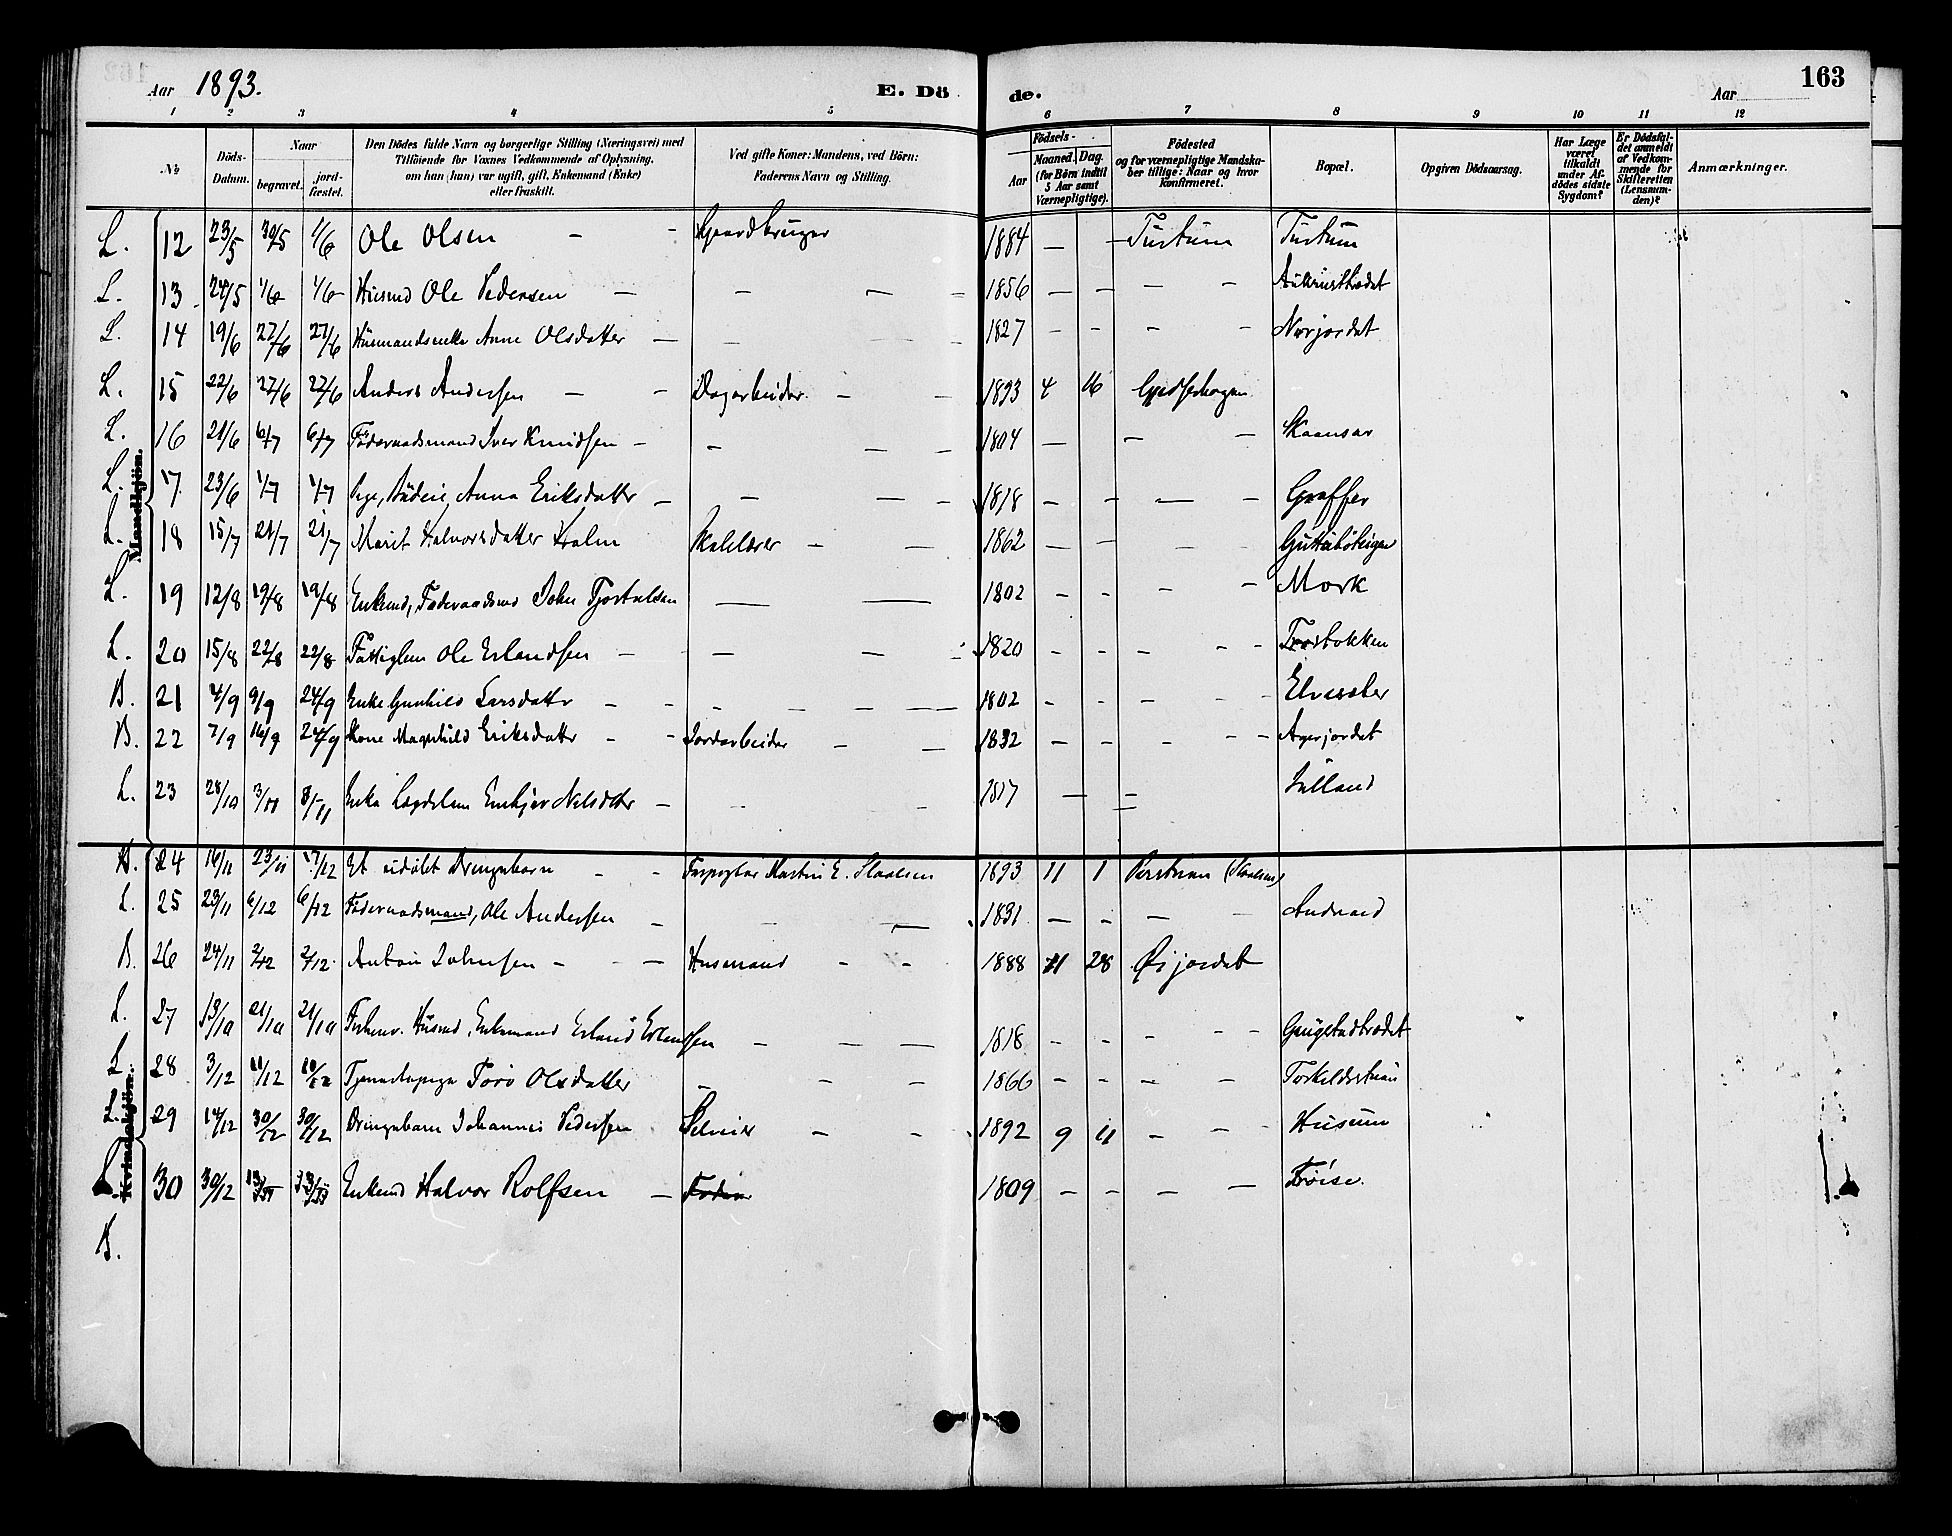 Aar 1893. E. Dö de. Aar 163
1 2 3 4 5 6 7 8 9 10 11 12
№ Döds-Datum. Naar begravet. jord-fæstet. Den Dödes fulde Navn og borgerlige Stilling (Næringsvei) med Tilföiende for Voxnes Vedkommende af Oplysning, om han (hun) var ugift, gift, Enkemand (Enke) eller fraskilt. Ved gifte Koner: Mandens, ved Börn: Faderens Navn og Stilling. Födsels- Aar Maaned. Dag. (for Börn indtil 5 Aar samt Værnepligtige). Födested og for værnepligtige Mandskaber tillige: Naar og hvor konfirmeret. Bopæl. Opgiven Dödsaarsag. Har Læge været tilkaldt under Afdödes sidste Sygdom? Er Dödsfaldet anmeldt af Vedkommende for Skifteretten (Lensmanden)? Anmærkninger.
Mandkjön.
L. 12 23/5 30/5 1/6 Ole Olsen - - Gaardbruger 1884 — - Turtum Turtum
L. 13. 24/5 1/6 1/6 Husmd Ole Pedersen — — — - 1856 — — — -
L. 14 19/6 27/6 27/6 Husmandsenke Anne Olsdatter — — 1827 - - - - Norjordet
L. 15 22/6 27/6 27/6 Anders Andersen - - Dagarbeider - - 1893 4 16
L. 16 21/6 6/7 6/7 Föderaadsmand Iver Knudsen - - — — 1804 — — — Skaansar
L. 17. 23/6 1/7 1/7 Anna Eriksdatter — — — — 1818 - - — - Graffer
L. 18 15/7 21/7 21/7 Marit Halvorsdatter - — 1862 — - - -
L. 19 12/8 19/8 19/8 Enkemd, Föderaadsmd John — — 1802 - - - - Mork
L. 20 15/8 22/8 22/8 Fattiglem Ole Erlandsen - - — — 1820 - - - - -
B. 21 4/9 9/9 24/9 Enke Gunhild Larsdatter - - - - - 1802 - - - - - Elvesæter
B. 22 7/9 16/9 24/9 Kone Magnhild Eriksdatter - - Jordarbeider - — 1832 - - - - - Agerjordet
L. 23 28/10 3/11 8/11 Enke Lægdslem Nilsdtr - - - 1817 — —
Kvindekjön.
B. 24 16/11 23/11 17/12 Et udöbt Drengebarn - - Forpagter Martin E. Slaalien 1893 11 1
L. 25 23/11 6/12 6/12 Föderaadsmand, Ole Andersen — - — 1831 — - — - Andvord
B. 26 24/11 2/12 2/12. Anton Johnsen - - — Husmand - - 1888 11 28 Øijordet
L. 27 13/10 21/10 21/10 Husmd, Enkemand Erland Erlandsen — — — 1818 - - - - -
L 28 3/12 11/12 Tjenestepige Toro Olsdatter - - - 1866 - - — -
L. 29 14/12 30/12 30/12 Drengebarn Johannes Pedersen - - 1892 9 11 - - - Husum
L. 30 30/12 Enkemd Halvor Rolfsen — 1809 - - - —
B.